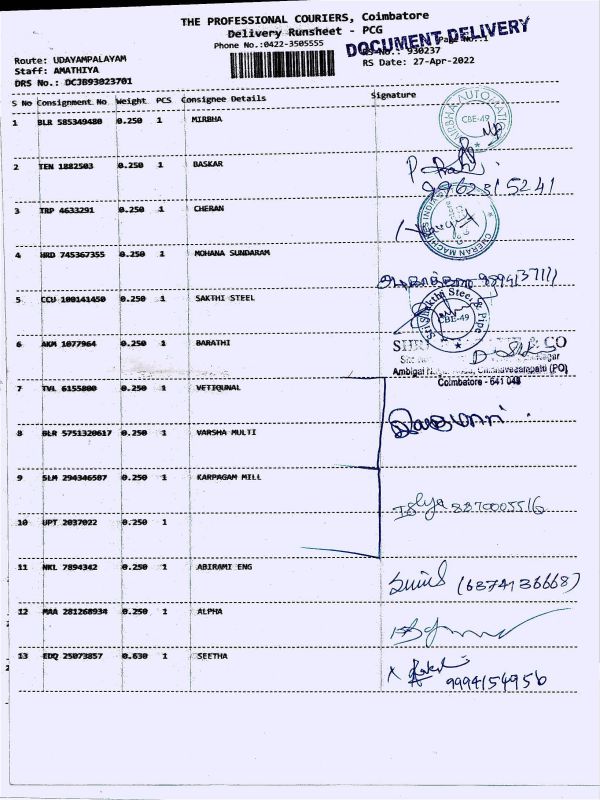 THE PROFESSIONAL COURIERS, Coimbatore
Delivery Runsheet - PCG
Phone No.:0422-3505555
Page No.:1
DOCUMENT DELIVERY
RS No.: 930237
RS Date: 27-Apr-2022
Route: UDAYAMPALAYAM
Staff: AMATHIYA
DRS No.: DCJB93023701
S No Consignment No Weight PCS Consignee Details Signature
1 BLR 585349480 0.250 1 MIRBHA
MIRBHA AUTOMATION CBE-49
2 TEN 1882503 0.250 1 BASKAR
9962315241
3 TRP 4633291 0.250 1 CHERAN
CHERAN MACHINES INDIA
4 HRD 745367355 0.250 1 MOHANA SUNDARAM
9894137111
5 CCU 100141450 0.250 1 SAKTHI STEEL
Sri Shakthi Steel & Pipe CBE-49
6 AKM 1077964 0.250 1 BARATHI
SHRI & CO
Nagar
Ambigai Chinnavedampatti (PO)
Coimbatore - 641 049
7 TVL 6155800 0.250 1 VETIQUNAL
8 BLR 5751320617 0.250 1 VARSHA MULTI
9 SLM 294346587 0.250 1 KARPAGAM MILL
8870005516
10 UPT 2037022 0.250 1
11 NKL 7894342 0.250 1 ABIRAMI ENG
(6374136668)
12 MAA 281268934 0.250 1 ALPHA
13 EDQ 25073857 0.630 1 SEETHA
9994154956